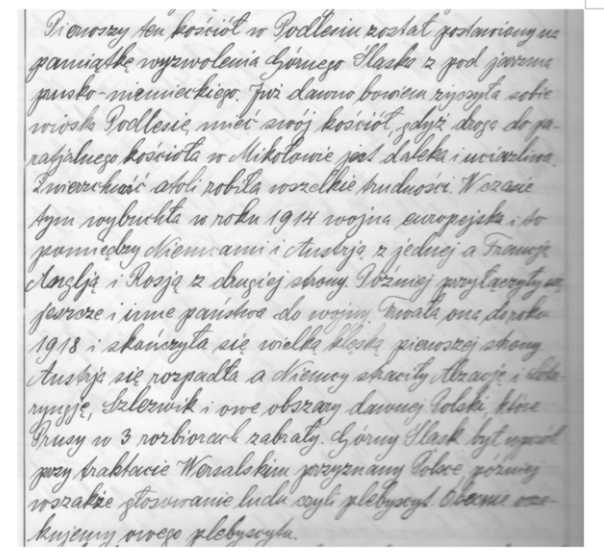 Pierwszy ten kościół w Podlesiu został postawiony na
pamiątkę wyzwolenia Górnego Śląska z pod jarzma
prusko-niemieckiego. Już dawno bowiem życzyła sobie
wioska Podlesie mieć swój kościół, gdyż droga do pa-
rafjalnego kościoła w Mikołowie jest daleka i uciążliwa.
Zwierzchność atoli robiła wszelkie trudności. W czasie
tym wybuchła w roku 1914 wojna europejska i to
pomiędzy Niemcami i Austrją z jednej a Francją
Anglją i Rosją z drugiej strony. Później przyłączyły się
jeszcze i inne państwa do wojny. Trwała ona do roku
1918 i skończyła się wielką klęską pierwszej strony
Austrja się rozpadła a Niemcy straciły Alzację i Lota-
ryngję, Szlezwik i owe obszary dawnej Polski, które
Prusy w 3 rozbiorach zabrały. Górny Śląsk był
przy traktacie Wersalskim przyznany Polsce, później
wszakże głosowanie ludu czyli plebyscyt. Obecnie ocze-
kujemy owego plebyscytu.